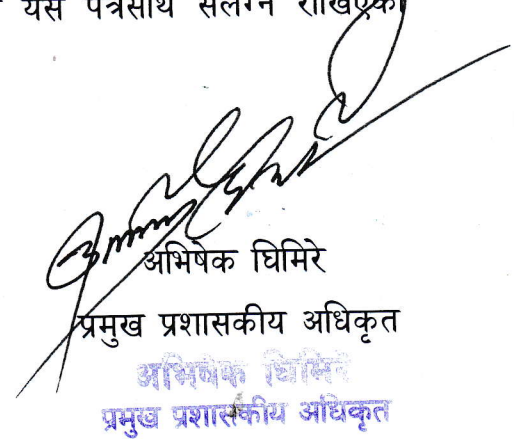 यस पत्रसाथ संलग्न राखिएको
अभिषेक घिमिरे
प्रमुख प्रशासकीय अधिकृत
अभिषेक घिमिरे
प्रमुख प्रशासकीय अधिकृत